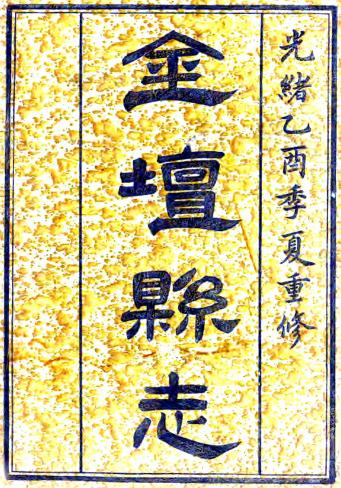 光緒乙酉季夏重修
金壇縣志